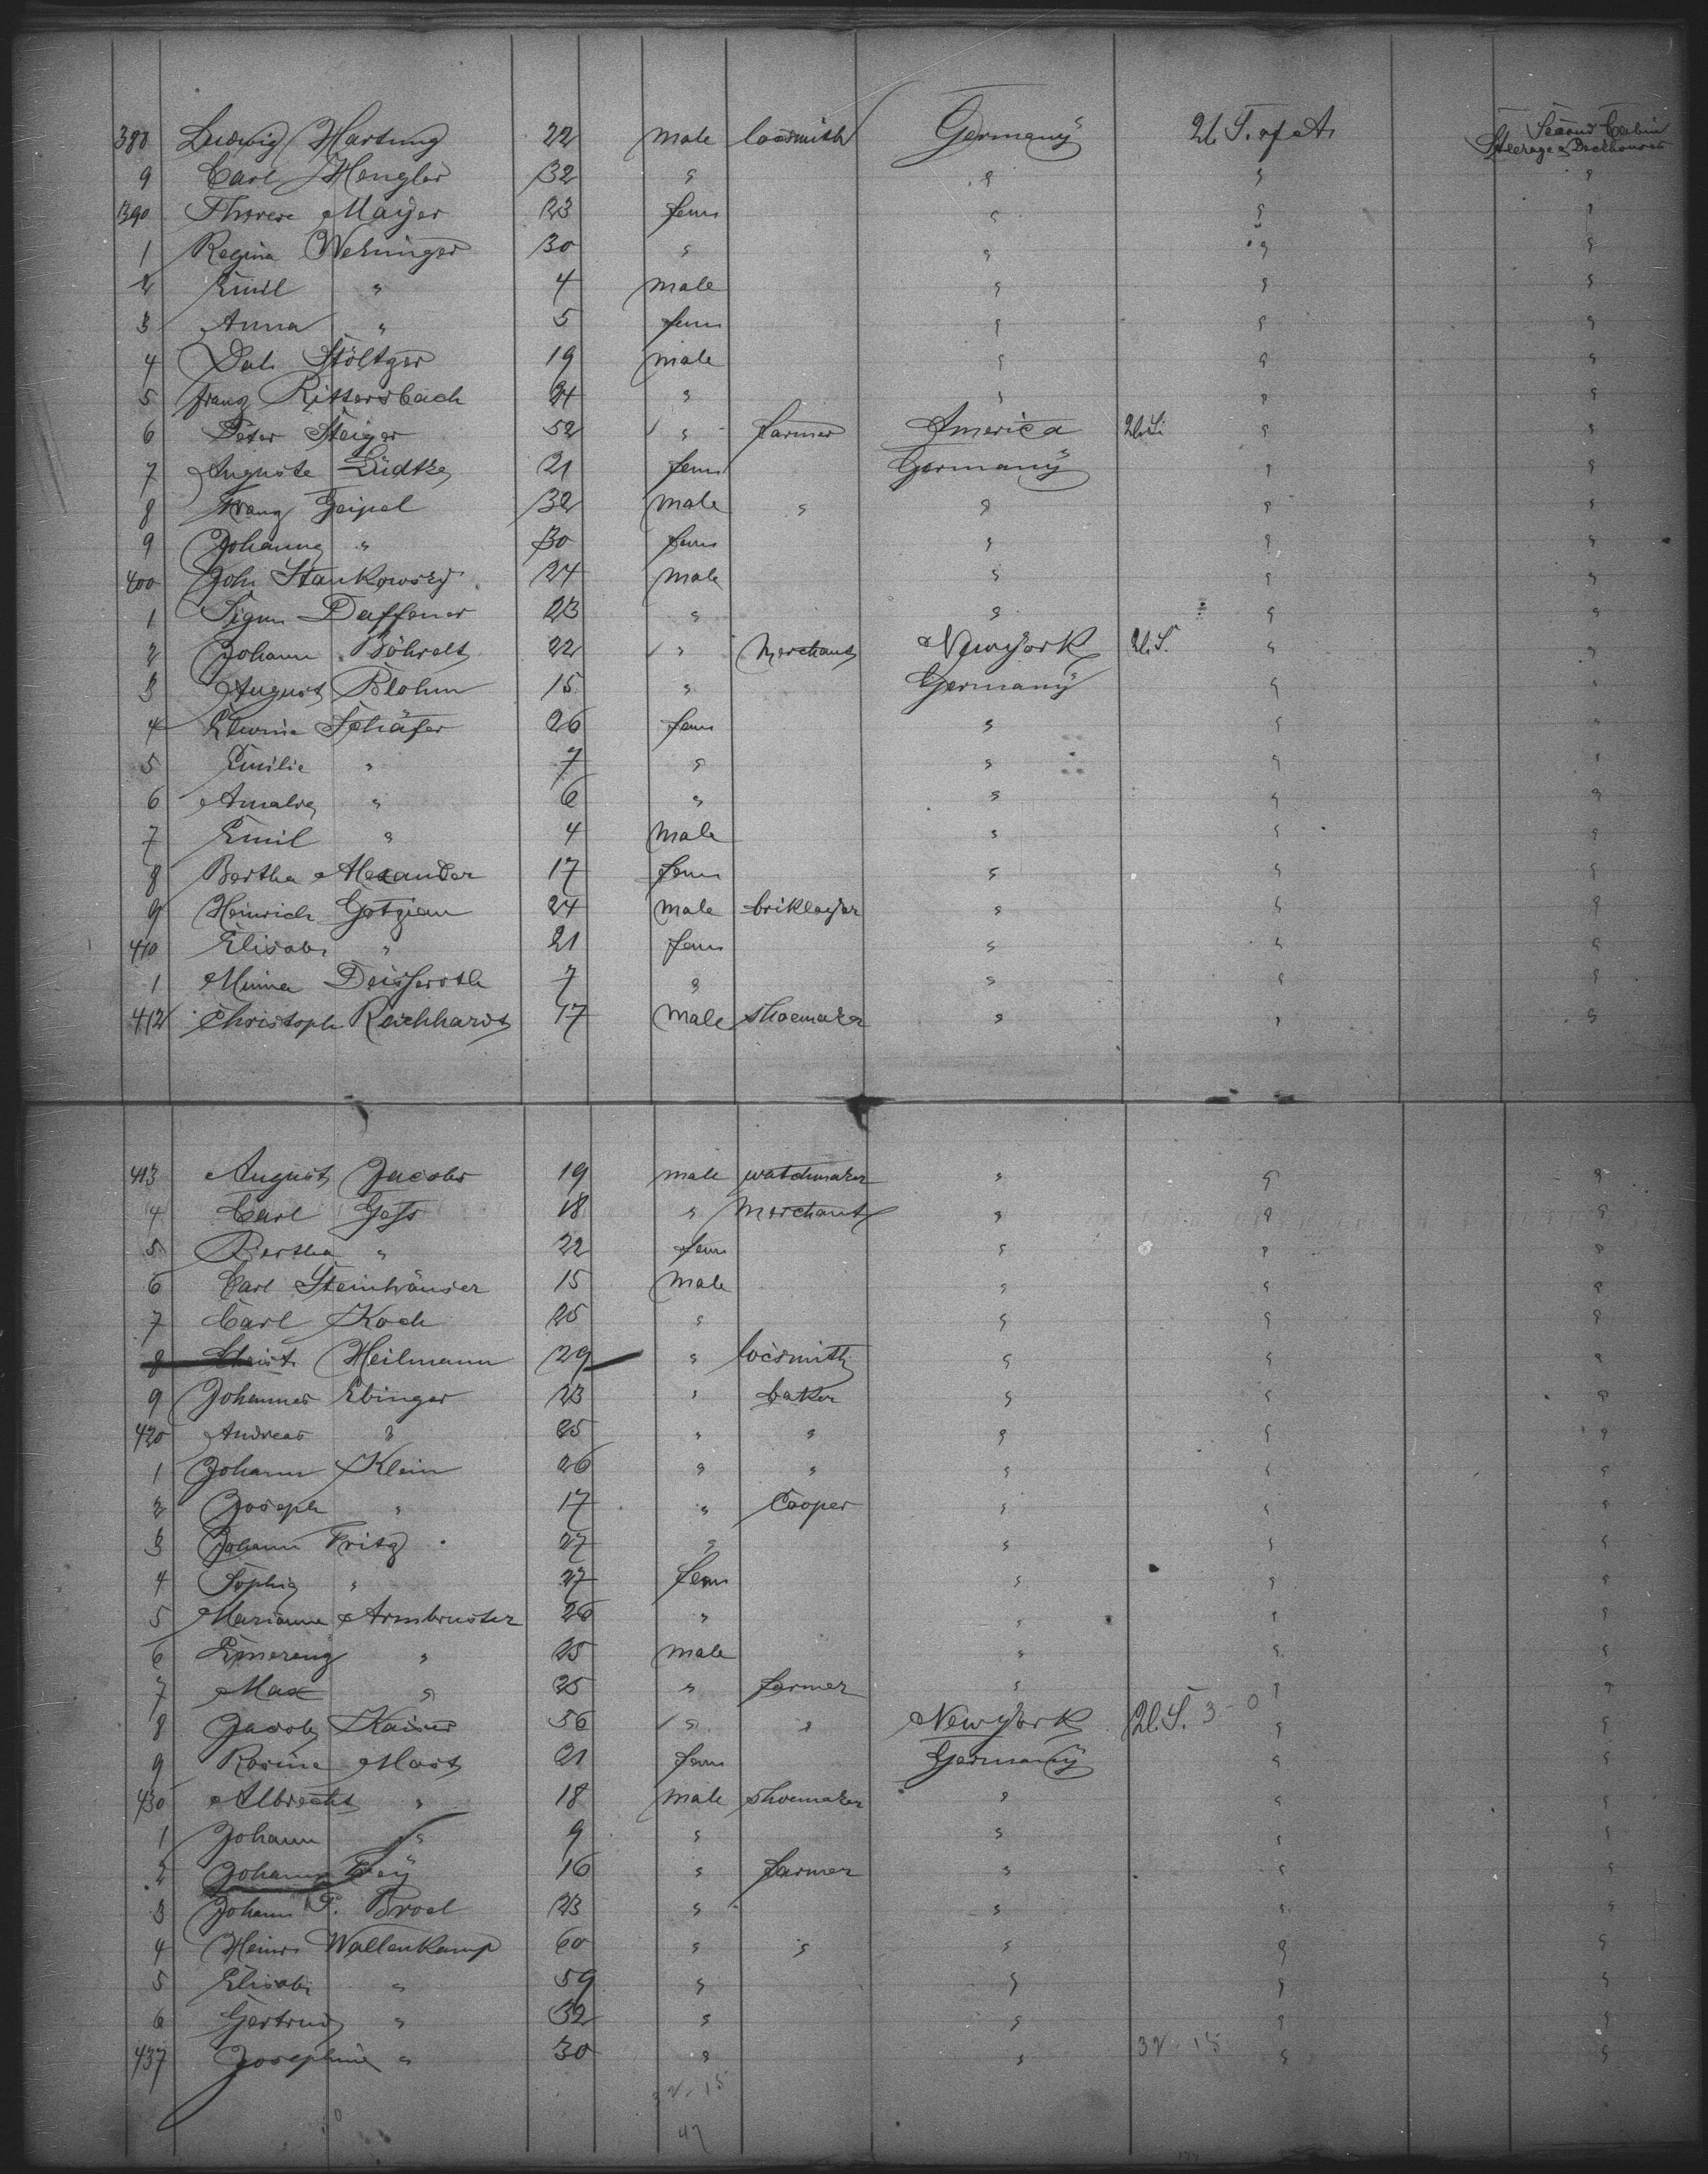 388 Ludwig Hartung 22 male locsmith Germany U. S. of A. Second Cabin Steerage & Deckhouses
9 Carl Hengler 32 " " " "
390 Therese Mayer 23 fem " " "
1 Regina Wehinger 30 " " " "
2 Emil " 4 male " " "
3 Anna " 5 fem " " "
4 Stöltger 19 male " " "
5 Franz Rittersbach 24 " " " "
6 Peter Steiger 52 " farmer America U.S. " "
7 Auguste Lüdtke 21 fem Germany " "
8 Franz Geipel 32 male " " " "
9 Johanna " 30 fem " " "
400 Joh. Stankowsky 24 male " " "
1 Daffener 23 " " " "
2 Johann 22 " Merchant Newyork U.S. " "
3 August Blohm 15 " Germany " "
4 Schäfer 26 fem " " "
5 Emilie " 7 " " " "
6 Amalie " 6 " " " "
7 Emil " 4 male " " "
8 Bertha Alexander 17 fem " " "
9 Heinrich Gotzian 24 male briklayer " " "
410 Elisab. " 21 fem " " "
1 Minna 7 " " " "
412 Christoph Reichhardt 17 male shoemaker " " "
413 August Jacobs 19 male watchmaker " " "
4 Carl Goss 18 " Merchant " " "
5 Bertha " 22 fem " " "
6 Carl Steinhäuser 15 male " " "
7 Carl Koch 25 " " " "
8 Christ. Heilmann 29 " locsmith " " "
9 Johannes Ebinger 23 " baker " " "
420 Andreas " 25 " " " " "
1 Johann Klein 26 " " " " "
2 Joseph " 17 " Cooper " " "
3 Johann Fritz 27 " " " "
4 Sophia " 27 fem " " "
5 Marianne Armbruster 26 " " " "
6 Emerenz " 25 male " " "
7 Max " 25 " farmer " " "
8 Jacob Kaiser 56 " " Newyork U.S. 3-0 " "
9 Rosine Mast 21 fem Germany " "
430 Albrecht " 18 male shoemaker " " "
1 Johann " 9 " " " "
2 Johann Fey 16 " farmer " " "
3 Johann Brod 23 " " " "
4 Heinr. Wallenkamp 60 " " " " "
5 Elisab. " 59 " " " "
6 Gertrud " 32 " " " "
437 Josephine " 30 " " 32-15 " "
32-15
47